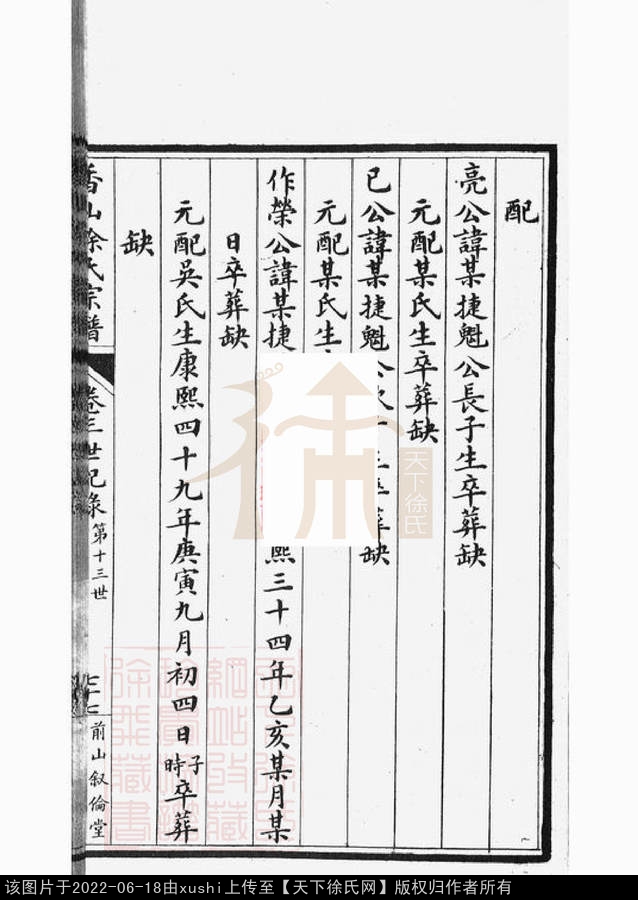 配
亮公諱某捷魁公長子生卒葬缺
元配某氏生卒葬缺
已公諱某捷魁公次 生卒葬缺
元配某氏生
作榮公諱某捷 熙三十四年乙亥某月某
日卒葬缺
元配吳氏生康熙四十九年庚寅九月初四日子時卒葬
缺
香山徐氏宗譜
卷三世紀錄 第十三世
前山叙倫堂
天下徐氏
该图片于2022-06-18由xushi上传至【天下徐氏网】版权归作者所有